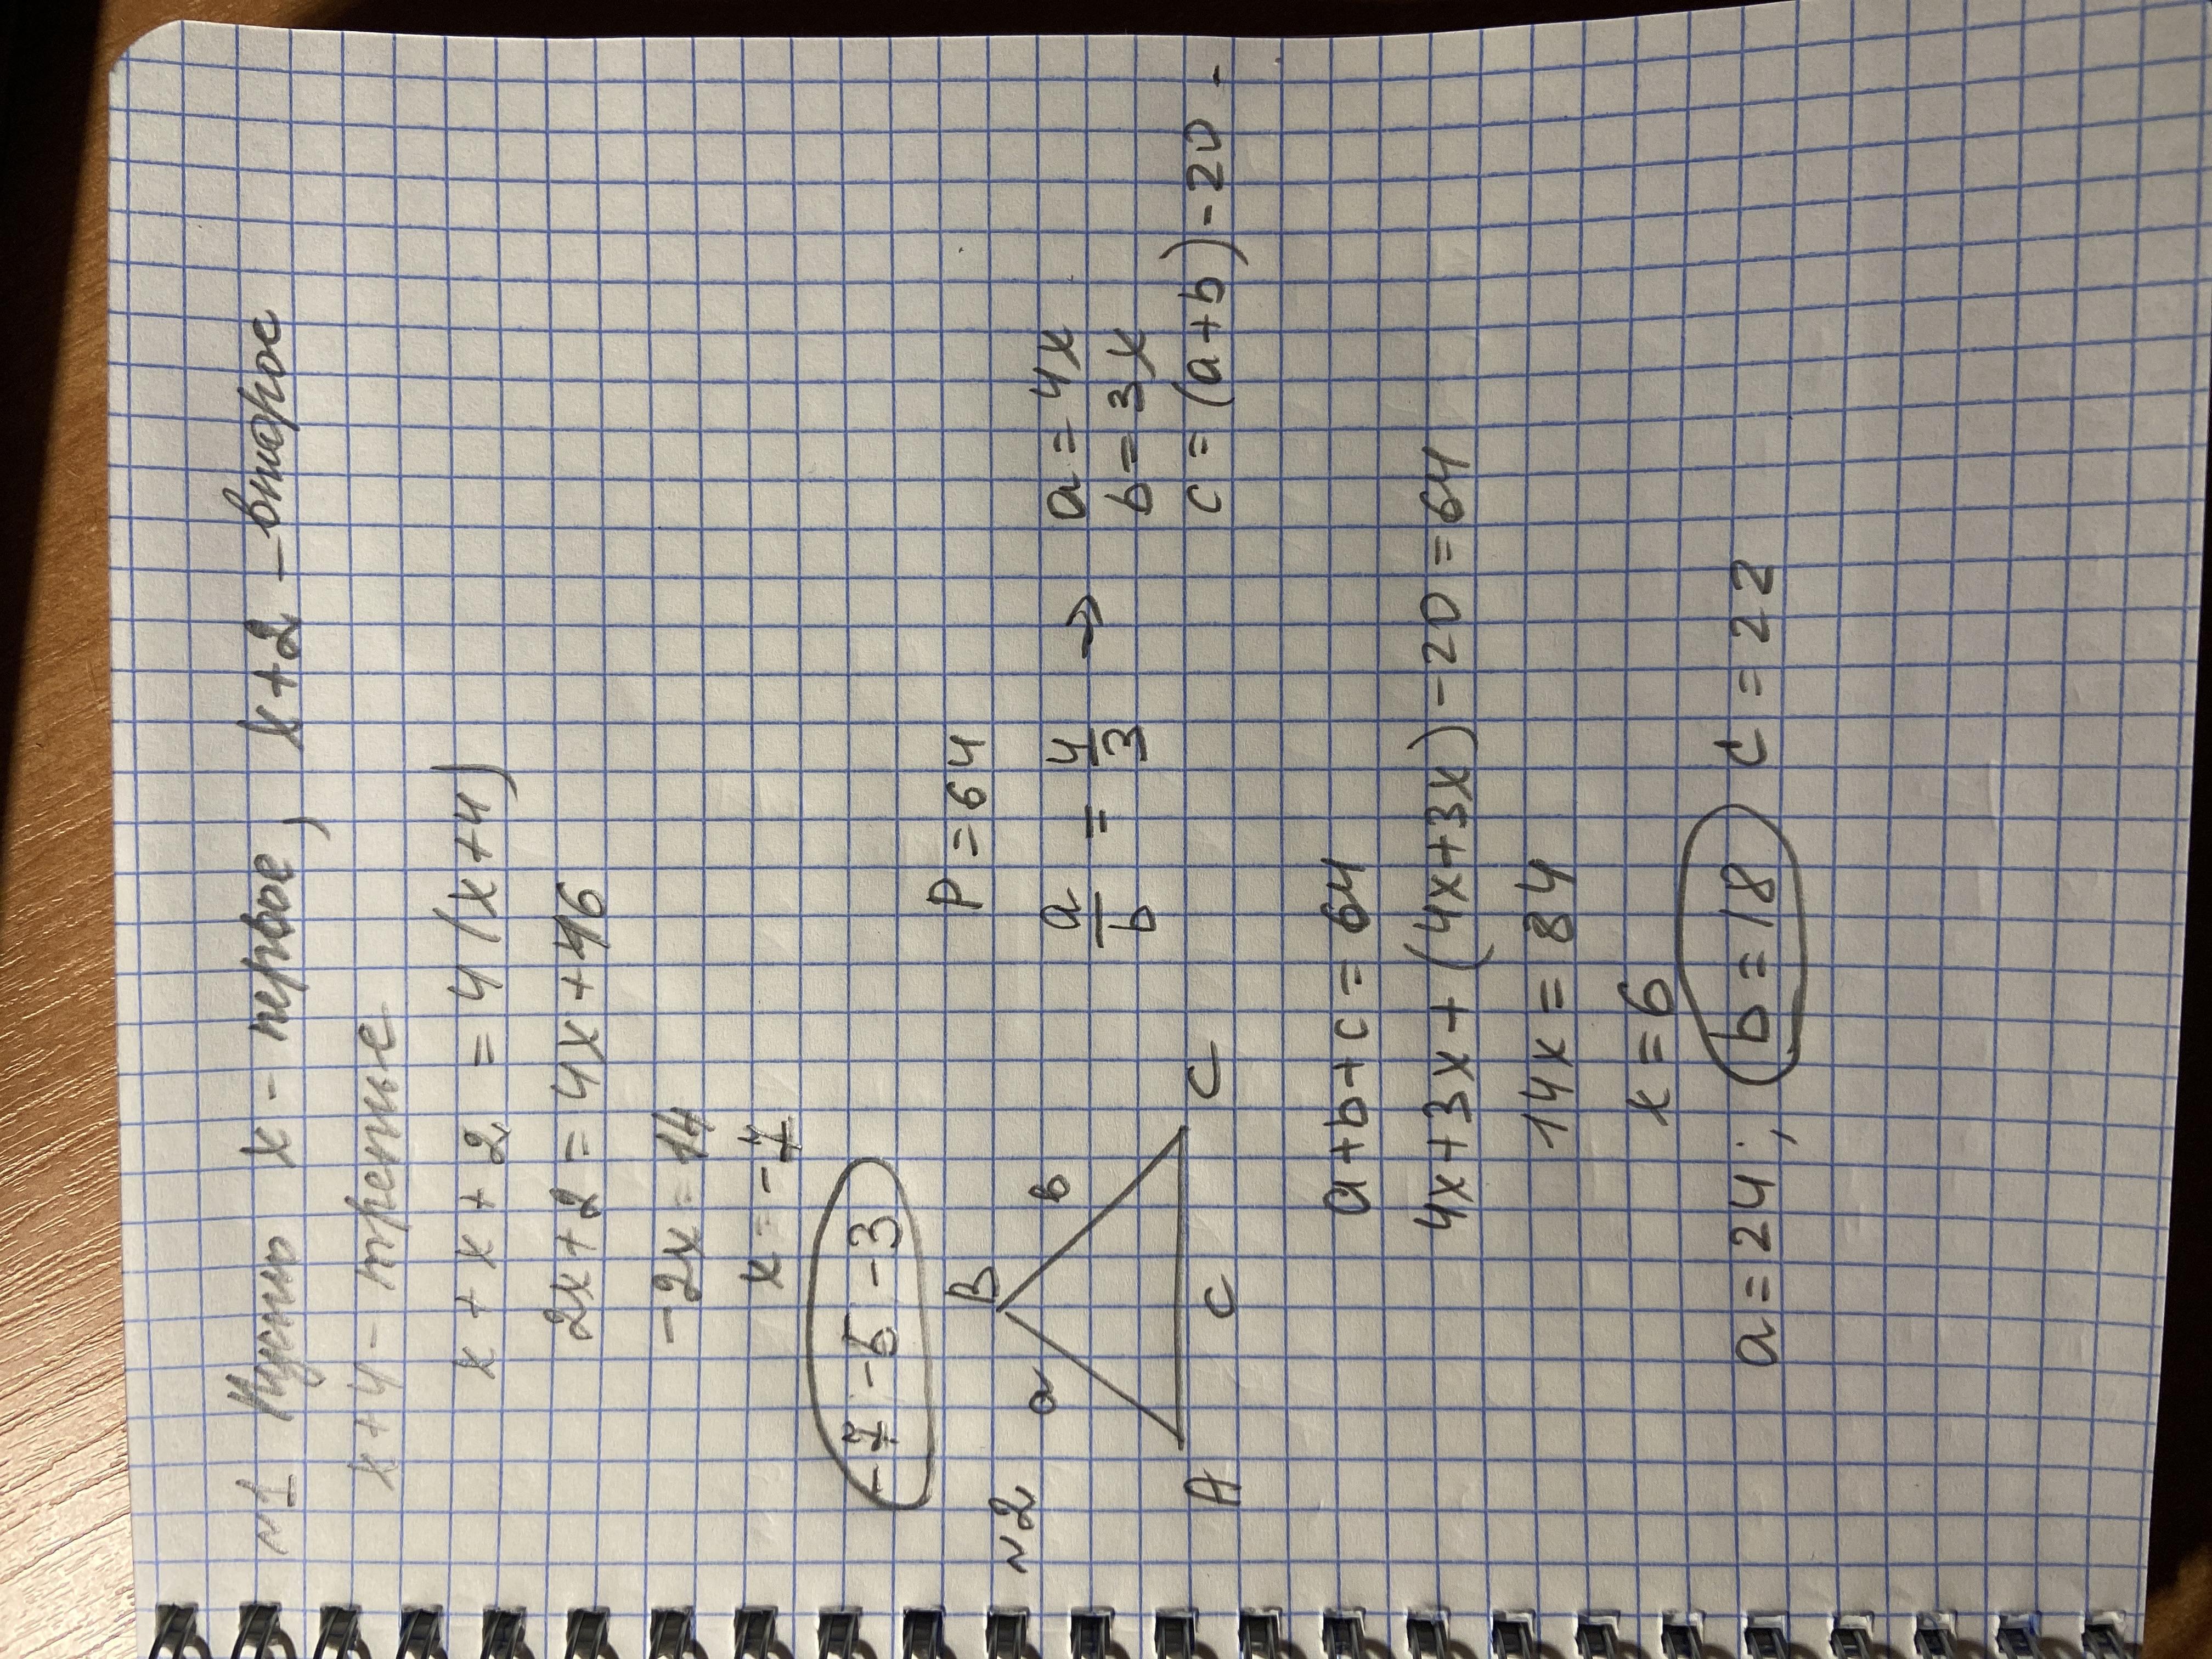 №1 Пусть x - первое, x+2 - второе
x+4 - третье
x + x + 2 = 4(x+4)
2x+2 = 4x+16
-2x=14
x=-7
-7 -5 -3
№2 B P=64
a b a/b = 4/3 → a=4x
b=3x
A c C c=(a+b)-20
a+b+c=64
4x+3x+(4x+3x)-20=64
14x=84
x=6
a=24; b=18 c=22